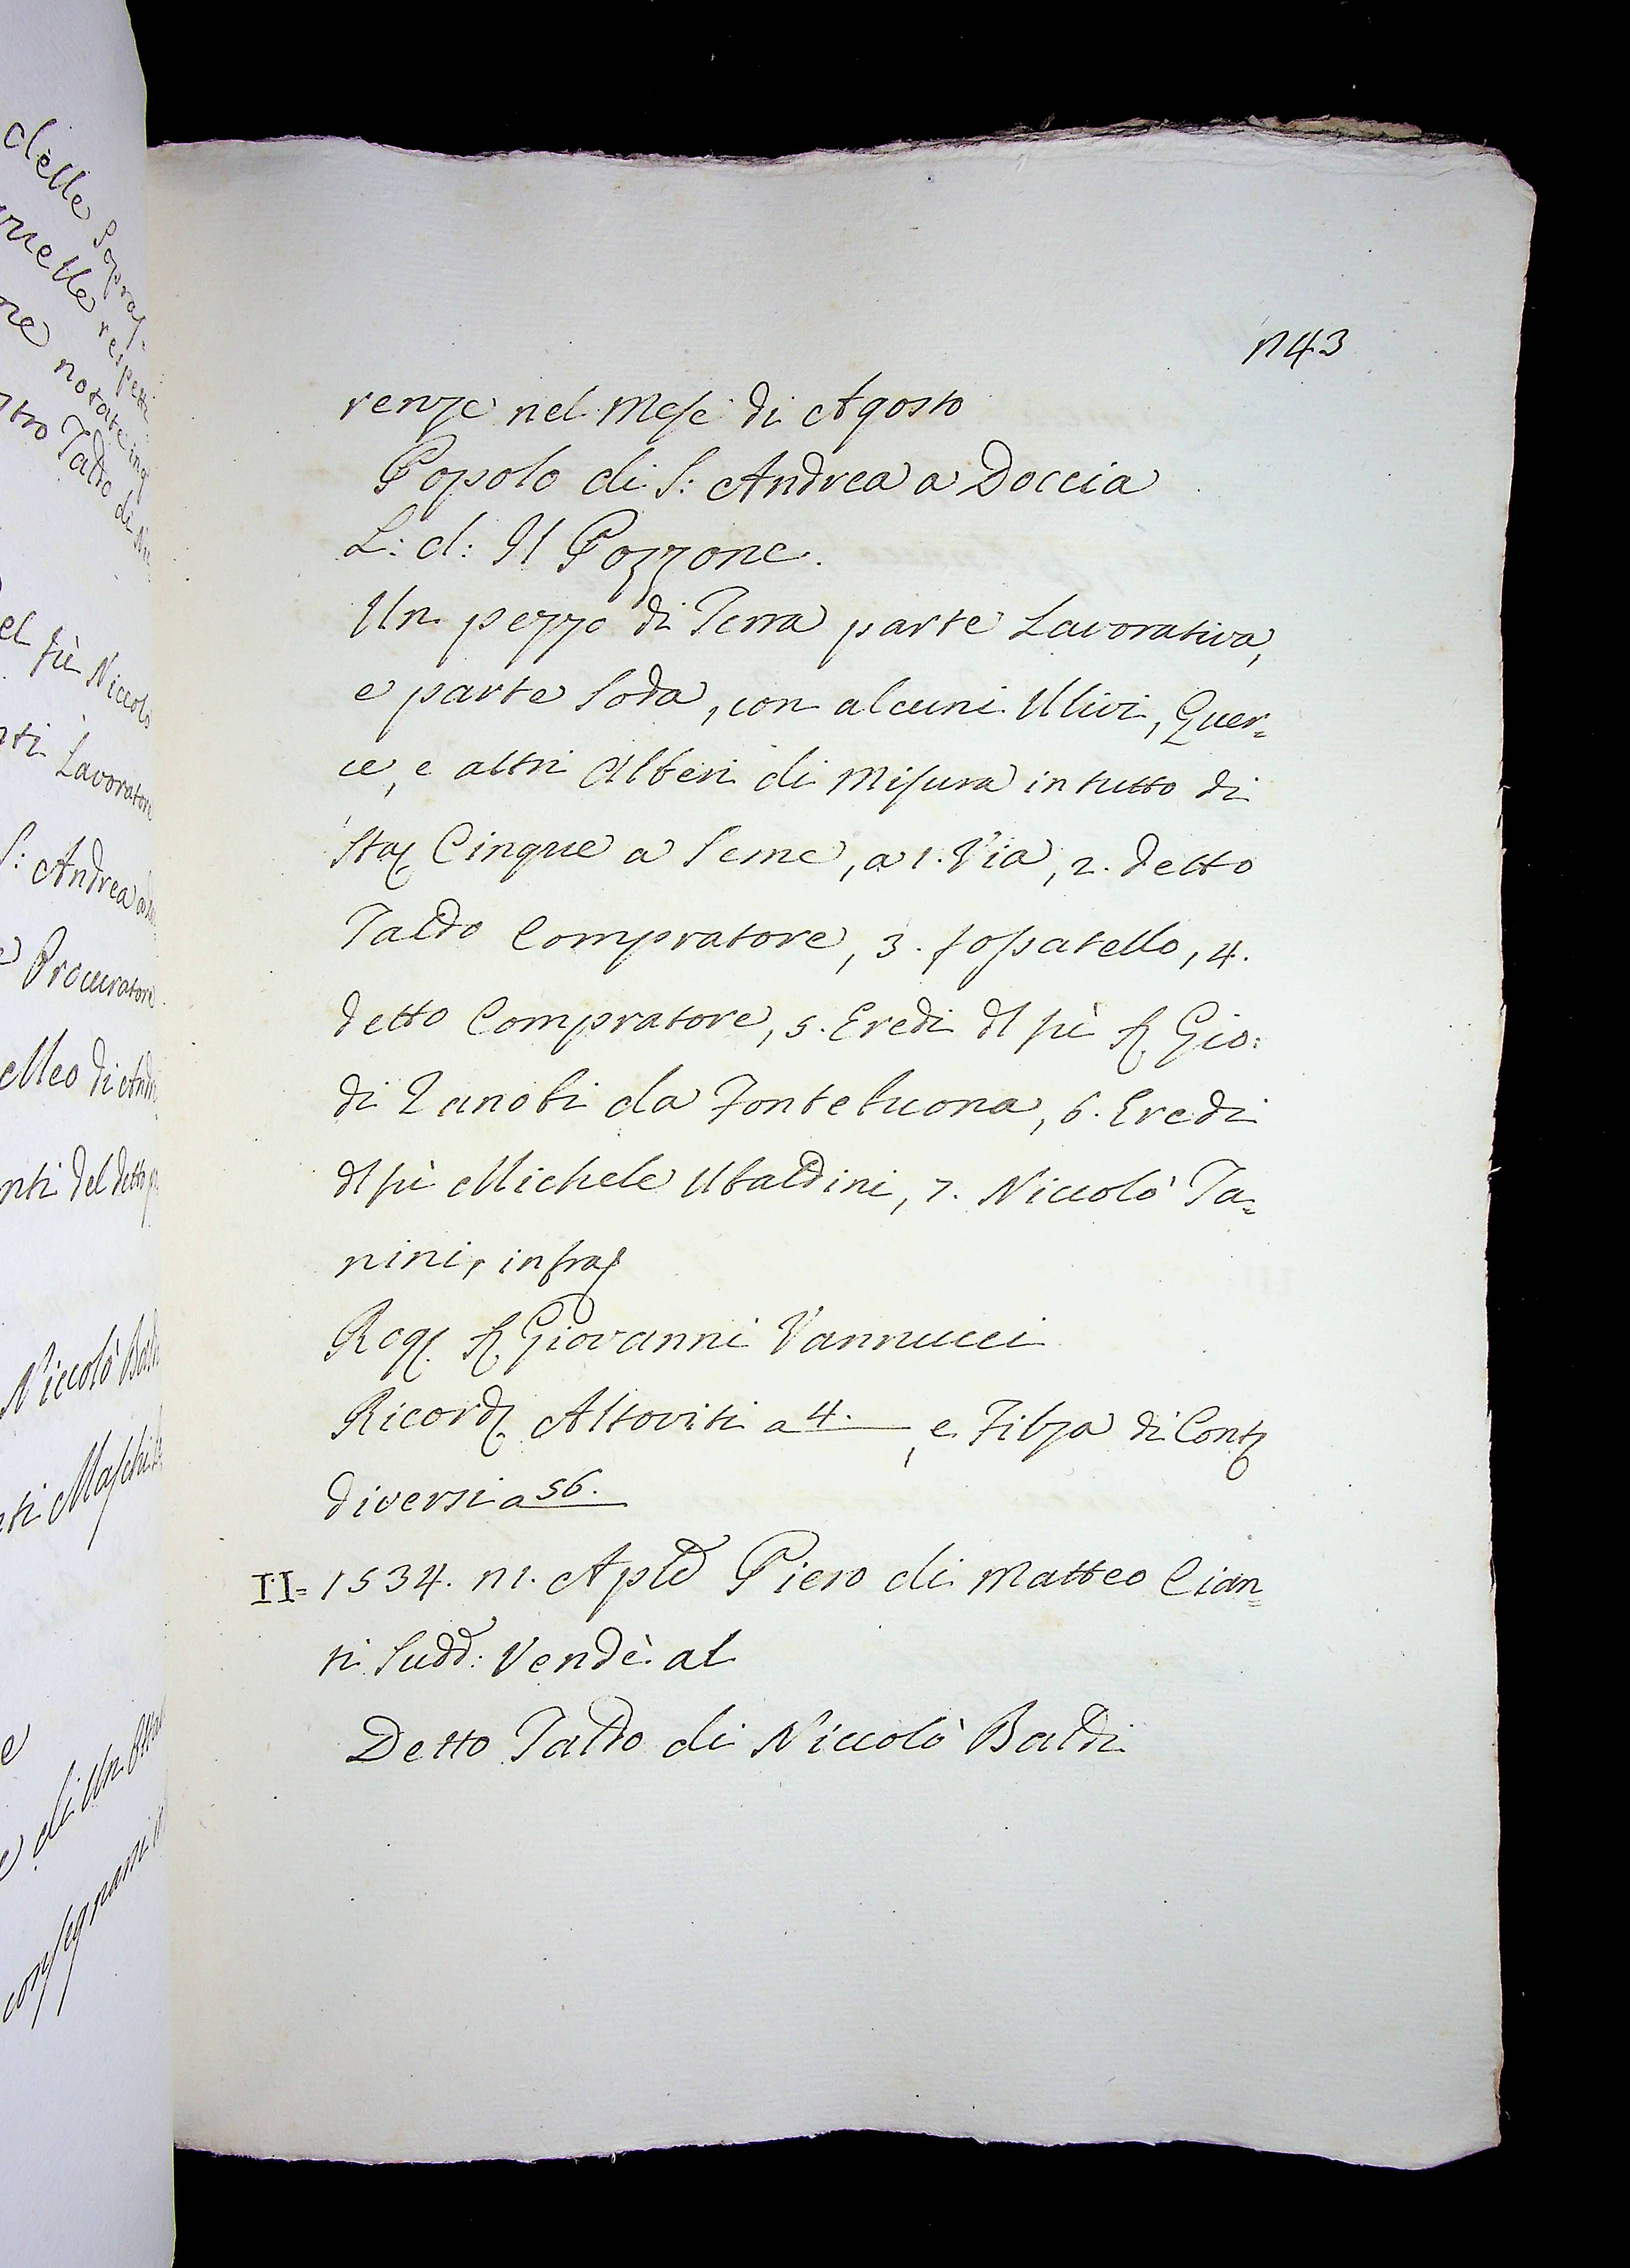 delle Sopra
nelle respetti
ne notate in
tro Taldo di Ni
el fù Niccolò
nti Lavorator
S: Andrea a
e Procurator
Meo di And
nti del detto
Niccolò Bald
ti Maschi
e
di Un
consegnarsi
143
renze nel Mese di Agosto
Popolo di S: Andrea a Doccia
L: d: Il Pozzone.
Un pezzo di Terra parte Lavorativa,
e parte Soda, con alcuni Ulivi, Quer=
ce, e altri Alberi di Misura in tutto di
Sta Cinque a Seme, a 1. Via, 2. detto
Taldo Compratore, 3. fossatello, 4.
detto Compratore, 5. Eredi dl fù S. Gio:
di Zanobi da Fontebuona, 6. Eredi
dl fù Michele Ubaldini, 7. Niccolò Ta=
nini, infra
Rog. S. Giovanni Vannucci
Ricord. Altoviti a 4. , e Filza di Cont
diversi a 56.
II= 1534. 11. Aple Piero di Matteo Cian=
ti Sudd: Vendè al
Detto Taldo di Niccolò Baldi